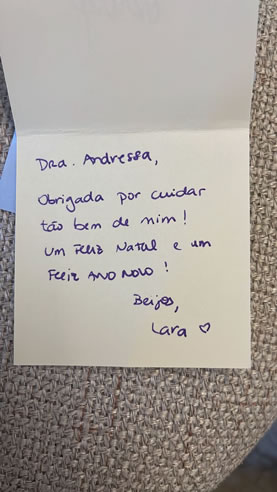 Dra. Andressa,
Obrigada por cuidar
tão bem de mim!
um Feliz Natal e um
Feliz ANO NOVO!
Beijos,
Lara ♡